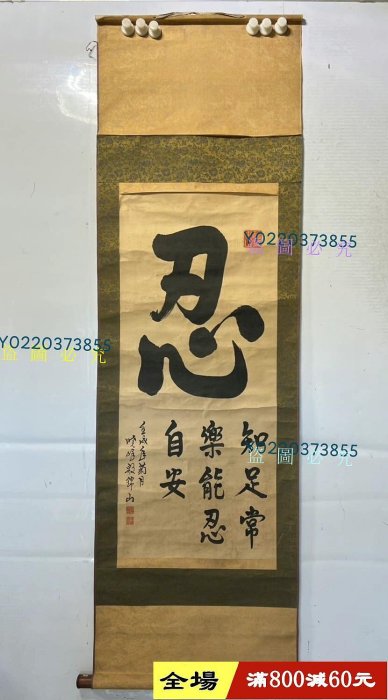 忍
知足常
樂能忍
自安
壬戌年菊月
Y0220373855
盜圖必究
Y0220373855
盜圖必究
Y0220373855
盜圖必究
全場
滿800減60元